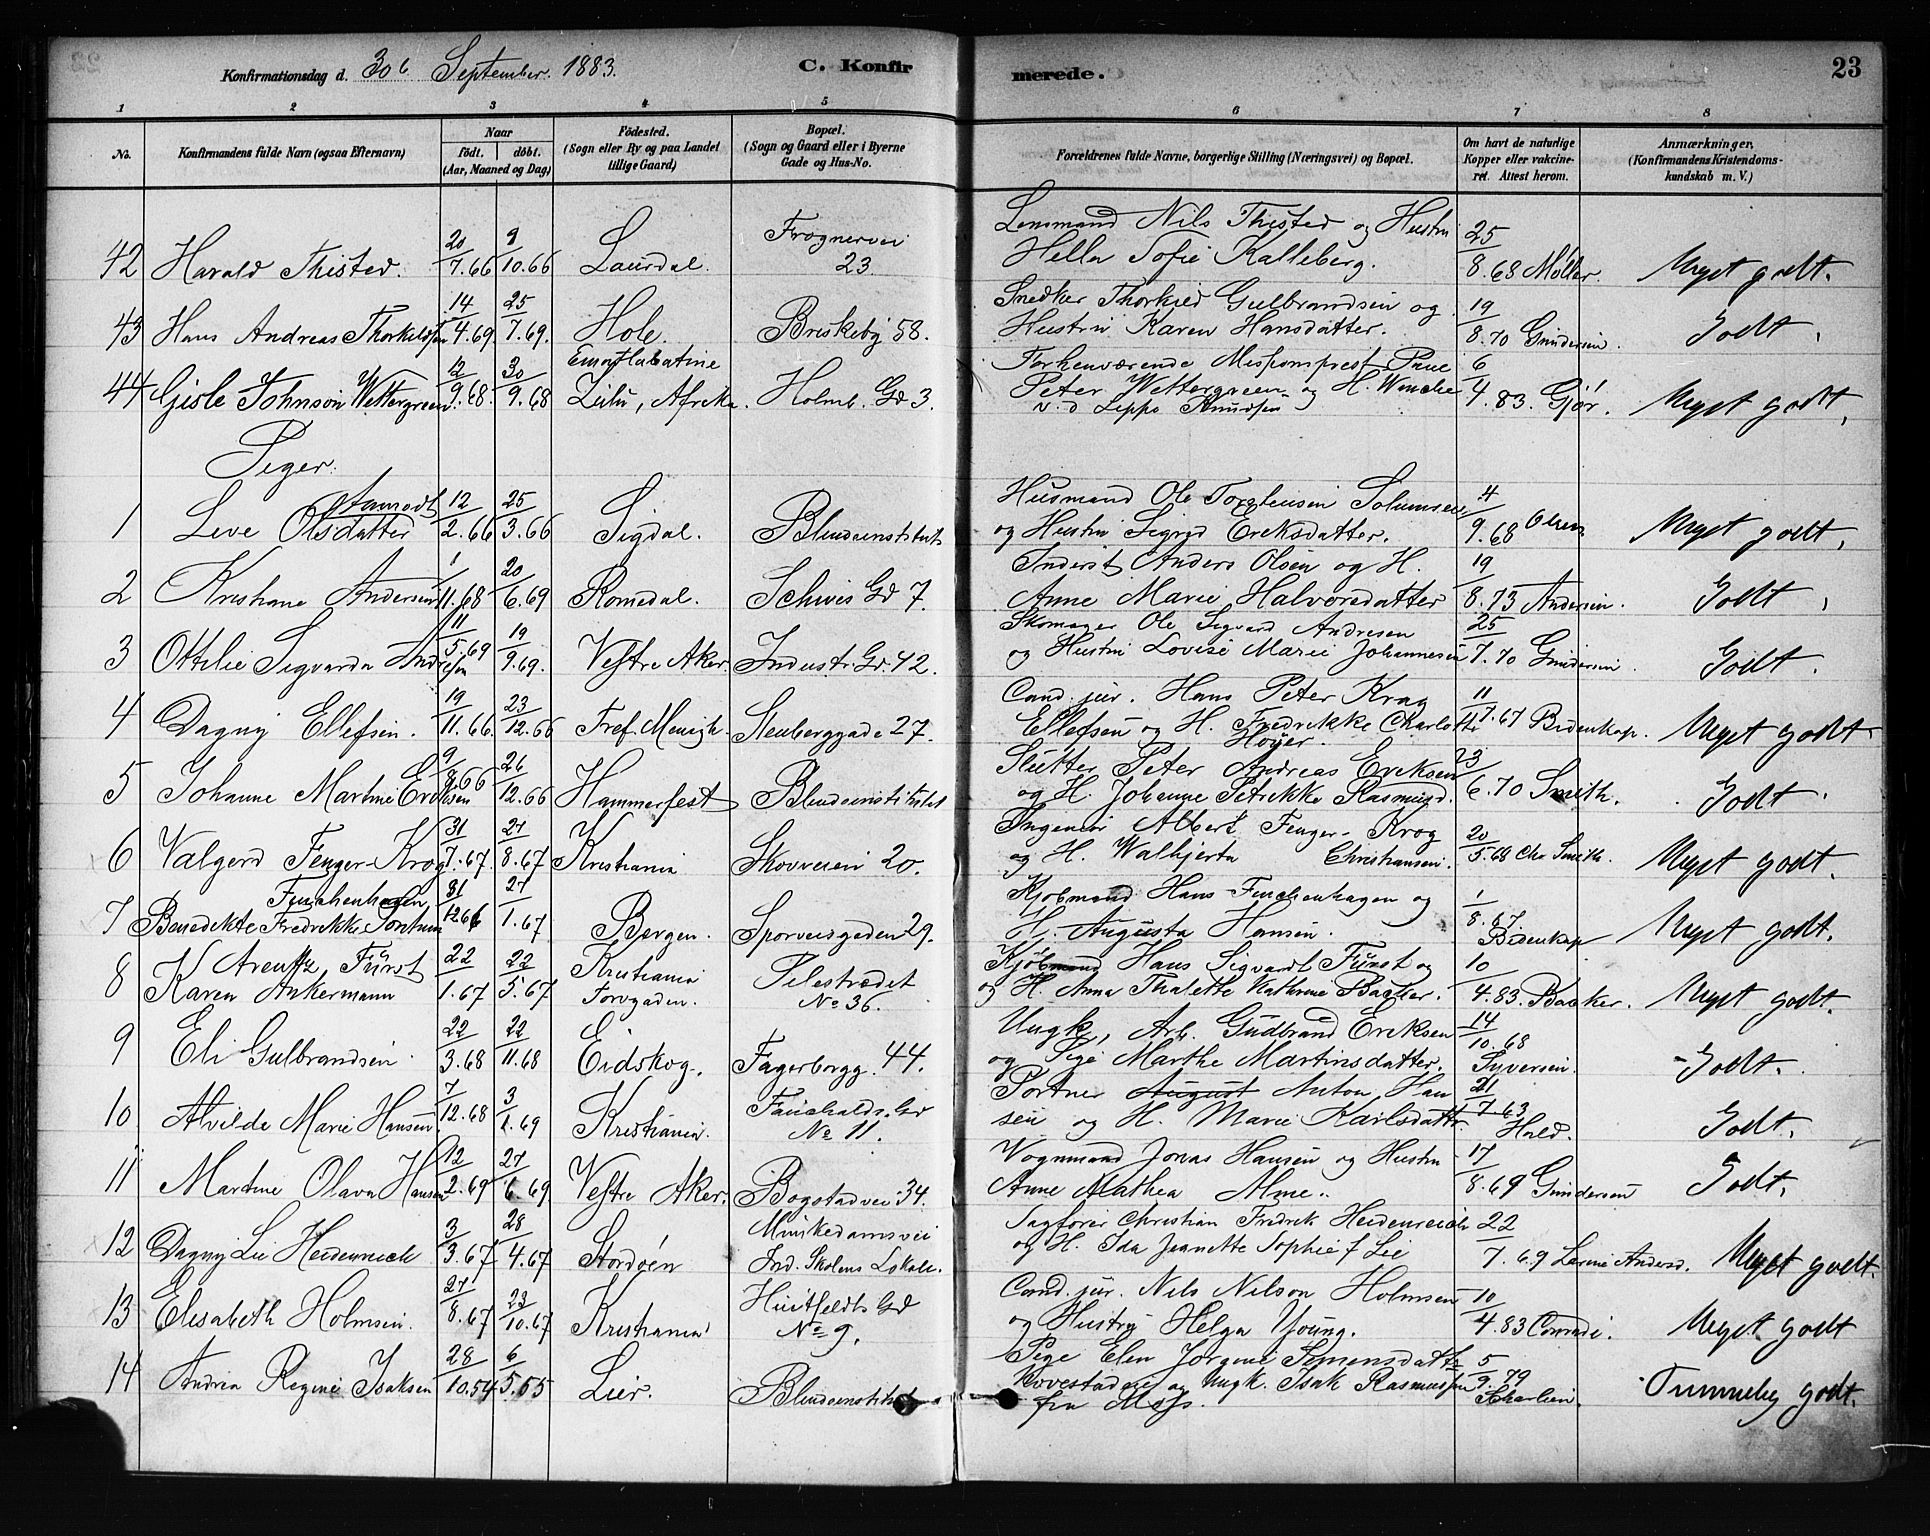 Konfirmationsdag d. 30 September 1883. C. Konfirmerede. 23
1 2 3 4 5 6 7 8
No. Konfirmandens fulde Navn (ogsaa Efternavn) Naar født. døbt. (Aar, Maaned og Dag) Fødested. (Sogn eller By og paa Landet tillige Gaard) Bopæl. (Sogn og Gaard eller i Byerne Gade og Hus-No. Forældrenes fulde Navne, borgerlige Stilling (Næringsvei) og Bopæl. Om havt de naturlige Kopper eller vakcineret. Attest herom. Anmærkninger, (Konfirmandens Kristendomskundskab m. V.)
Frognervei Lensmand Nils Thisted og Hustru
42 Harald Thisted. 20/7.66 9/10.66 Laurdal. 23. Sofie Kalleberg. 25/8.68 Møller. Meget godt.
Snedker Gulbrandsen og
43 Hans Andreas 14/4.69 25/7.69. Hole. Briskeby 58. Hustru Karen Hansdatter. 19/8.70 Gundersen. Godt.
Forhenværende Missionsprest
44 Gisle Johnson Wettergreen. 12/9.68. 30/9.68 Zulu, Afrika. Holmb. Gd 3. Peter Wettergreen og H. Wenche
Knudsen 6/4.83. Gjør. Meget godt.
Piger.
Husmand Ole Solumsen
1 Live Olsdatter 12/2.66 25/3.66 Sigdal. Blindeinstitut og Hustru Sigrid Eriksdatter. 4/9.68 Olsen Meget godt.
Inderst Anders Olsen og H.
2 Kristiane Andersen 1/11.68 20/6.69 Romedal. Schives Gd 7. Anne Marie Halvorsdatter 19/8.73 Andersen. Godt.
Skomager Ole Sigvard Andresen
3 Ottilie Sigvarda Andresen 11/5.69 19/9.69. Vestre Aker. Industr. Gd. 42. og Hustru Lovise Marie Johannesen 25/7.70 Gundersen. Godt.
Cand. jur. Hans Peter Krag
4 Dagny Ellefsen. 19/11.66. 23/12.66 Tref. Menigh. Stenberggade 27. Ellefsen og H. Fredrikke Charlotte
Høyer. 11/7.67 Bidenkap. Meget godt.
Peter Andreas Eriksen
5 Johanne Martine Eriksen 9/8.66 26/12.66 Hammerfest Blindeinstitutet og H. Johanne Petrikke Rasmusd. 23/6.70 Smith. Godt.
Ingeniør Albert Fenger-Krog
6 Valgerd Fenger-Krog 31/7.67. 27/8.67 Kristiania Skovveien 20. og H. Christiansen. 20/5.68 Chr Smith. Meget godt.
Finckenhagen Kjøbmand Hans Finckenhagen og
7 Benedikte Fredrikke 31/12.66 27/1.67 Bergen. Sporveisgaden 29. H. Augusta Hansen. 1/8.67 Bidenkap Meget godt.
Arentz Fürst Kristiania Pilestrædet Hans Sigvardt Fürst og
8 Karen Ankermann 22/1.67 22/5.67 Torvgaden. No 36. og H. Anna Thalette Kathrine Backer. 10/4.83. Backer. Meget godt.
Ungk., Arb. Gudbrand Eriksen
9 Eli Gulbrandsen. 22/3.68 22/11.68 Eidskog. Fagerborgg. 44. og Pige Marthe Martinsdatter. 14/10.68 Syversen. Godt.
Fauchalds. Gd Portner August Anton Han
10 Alvilde Marie Hansen. 7/12.68 3/1.69 Kristiania. No 11. sen og H. Marie Karlsdatter 21/7.63 Hald. Godt.
Vognmand Jonas Hansen og Hustru
11 Martine Olava Hansen 12/2.69 27/6.69 Vestre Aker. Bogstadvei 34. Anne Mathea Alme. 17/8.69 Gundersen Godt.
Munkedamsvei Sagfører Christian Fredrik Heidenreich
12 Dagny Lie Heidenreich 3/3.67 28/4.67 Stordøen Ind. Skolens Lokale. og H. Ida Jeanette Sophie f Lie 22/7.69 Andersd. Meget godt.
Huitfeldts Gd Cand. jur. Nils Nilson Holmsen
13 Elisabeth Holmsen. 27/8.67 23/10.67 Kristiania No 9. og Hustru Helga Young. 10/4.83 Conradi. Meget godt
Pige Elen Jørgine Simensdatter
14 Andrea Regine Isaksen 28/10.54 6/5.55 Lier. Blindeinstitut og Ungk. Isak Rasmussen
fra Moss. 5/9.79 Scharlien. Temmelig godt.